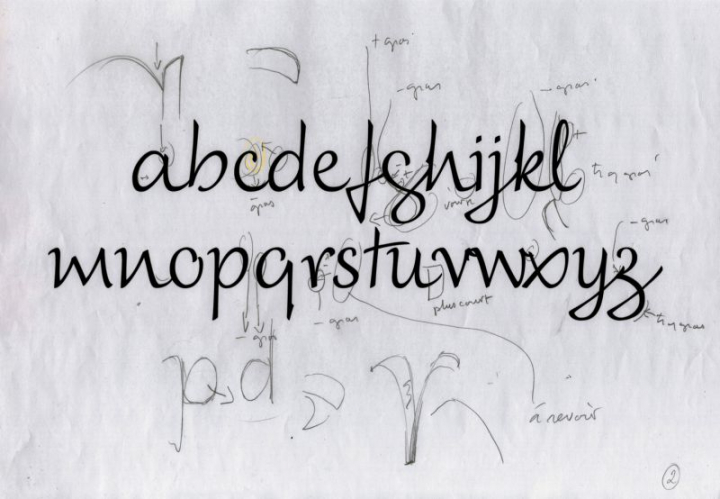 + gras
- gras
- gras
abcdefghijkl
+
+
trop gras
gras
à voir
- gras
mnopqrstuvwxyz
plus court
- gras
trop gras
- gras
p d
à revoir
2